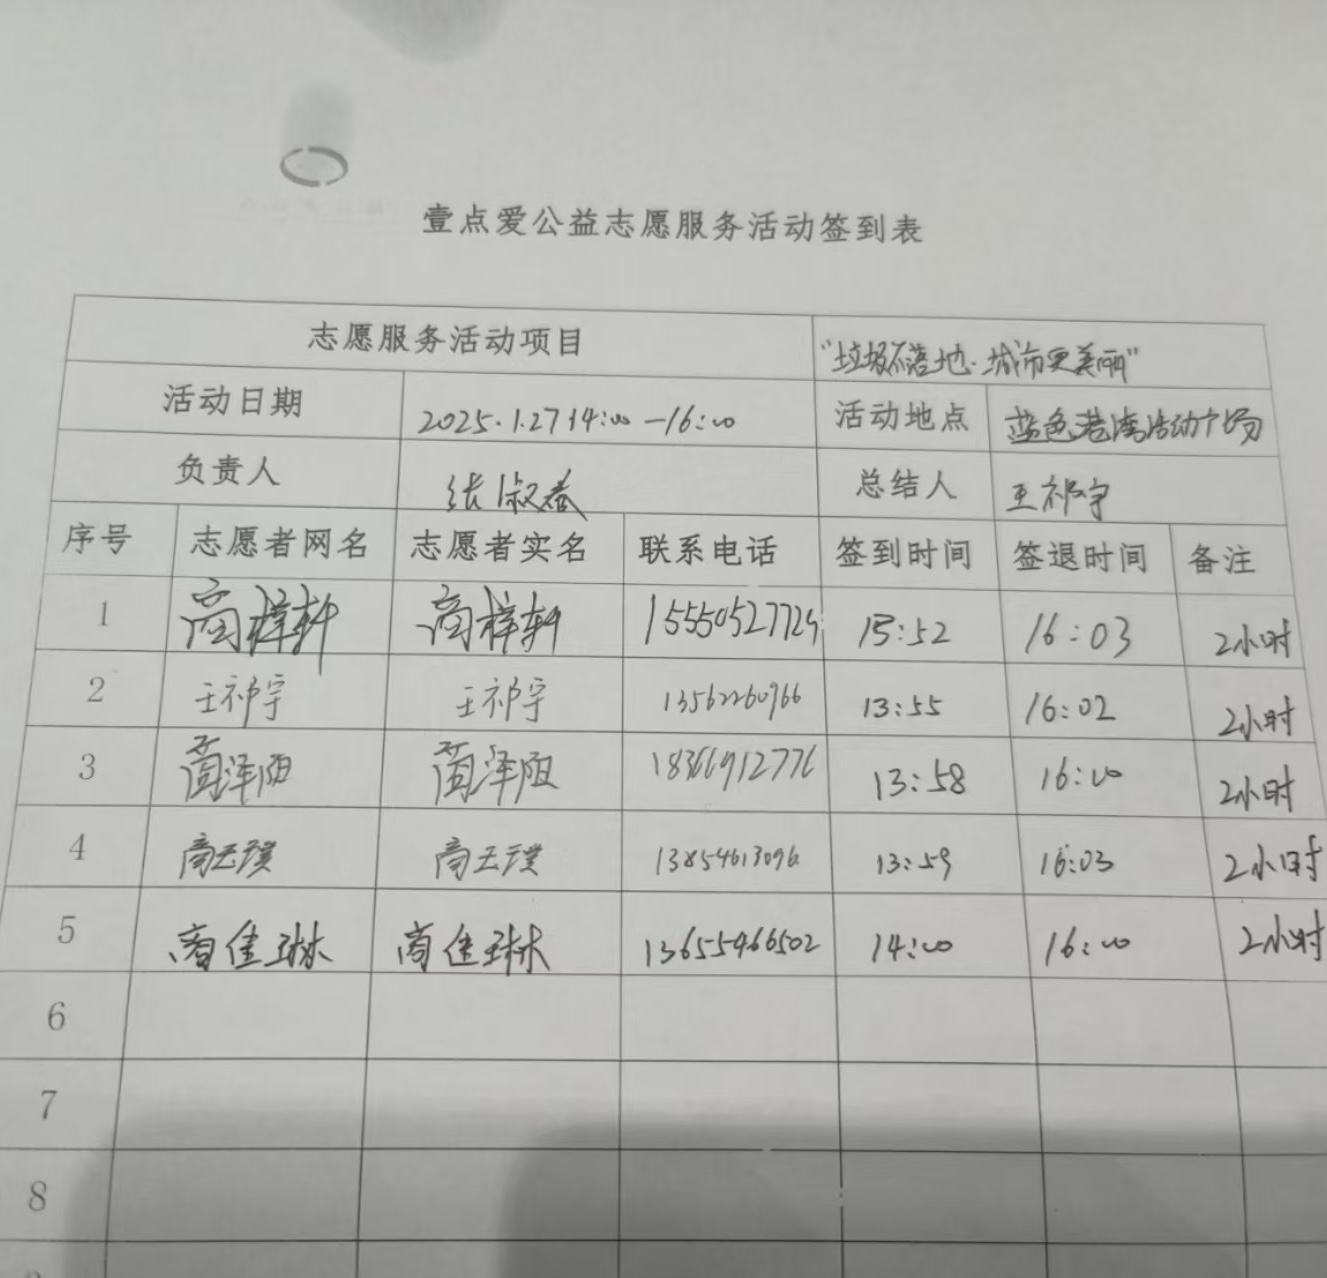 壹点爱公益志愿服务活动签到表
志愿服务活动项目 "垃圾不落地·城市更美丽"
活动日期 2025.1.27 14:00—16:00 活动地点 蓝色港湾活动广场
负责人 张淑春 总结人 王祁宇
序号 志愿者网名 志愿者实名 联系电话 签到时间 签退时间 备注
1 商梓轩 商梓轩 15550527729 13:52 16:03 2小时
2 王祁宇 王祁宇 13562260966 13:55 16:02 2小时
3 蔄泽阳 蔄泽阳 18366912776 13:58 16:00 2小时
4 商玉璞 商玉璞 13854613096 13:59 16:03 2小时
5 商佳琳 商佳琳 13655466502 14:00 16:00 2小时
6
7
8